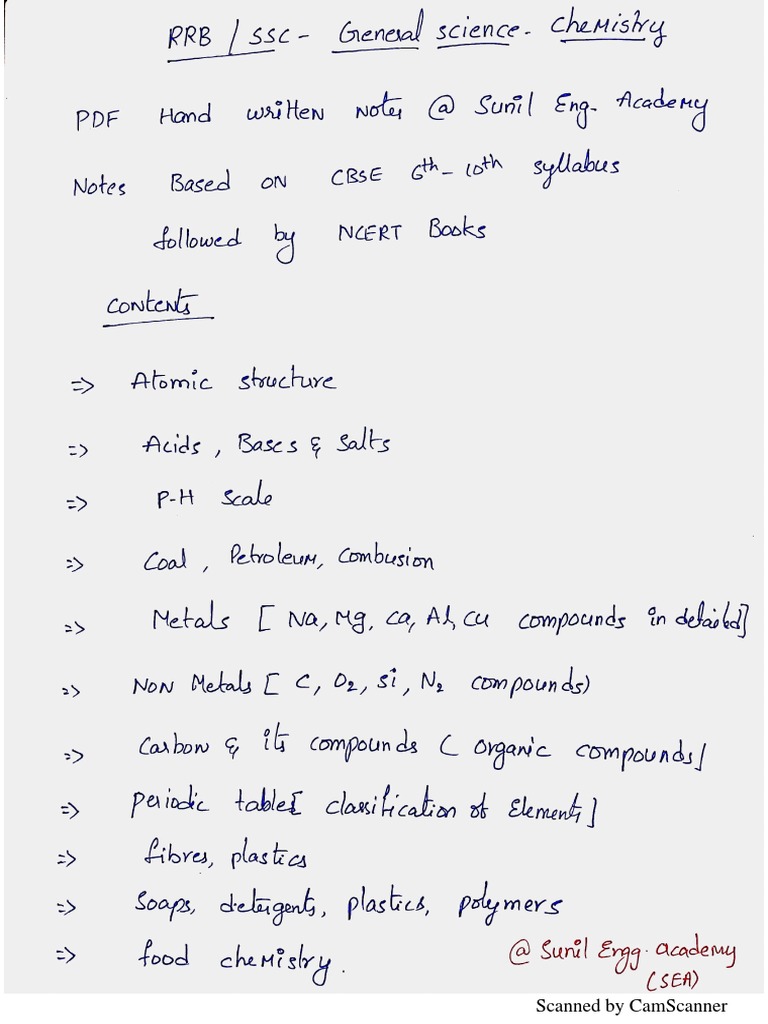 RRB / SSC - General science - Chemistry
PDF Hand written notes @ Sunil Eng. Academy
Notes Based on CBSE 6th - 10th syllabus
followed by NCERT Books
Contents
=> Atomic structure
=> Acids, Bases & Salts
=> P-H Scale
=> Coal, Petroleum, Combusion
=> Metals [ Na, Mg, Ca, Al, Cu compounds in detailed]
=> Non Metals [ C, O2, Si, N2 compounds)
=> Carbon & its compounds ( organic compounds]
=> Periodic table[ classification of Elements]
=> fibres, plastics
=> Soaps, detergents, plastics, polymers
=> food chemistry.
@ Sunil Engg. academy
(SEA)
Scanned by CamScanner